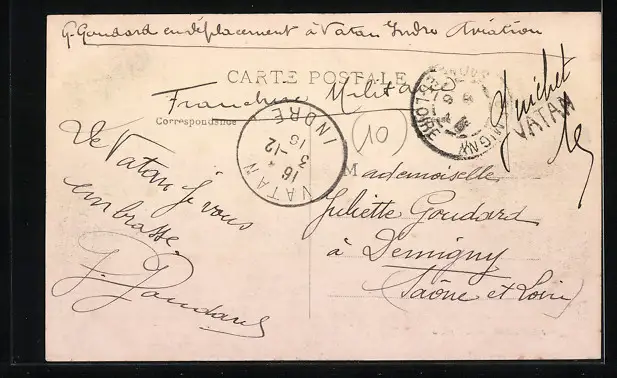 G. Goudard en déplacement à Vatan Indre Aviation
CARTE POSTALE
Franchise Militaire
Correspondance
(10)
VATAN
INDRE
16
3 -12
16
DEMIGNY
LOIRE
Guichet
VATAN
De Vatan je vous
embrasse.
G. Goudard
Mademoiselle
Juliette Goudard
à Demigny
(Saône et Loire)